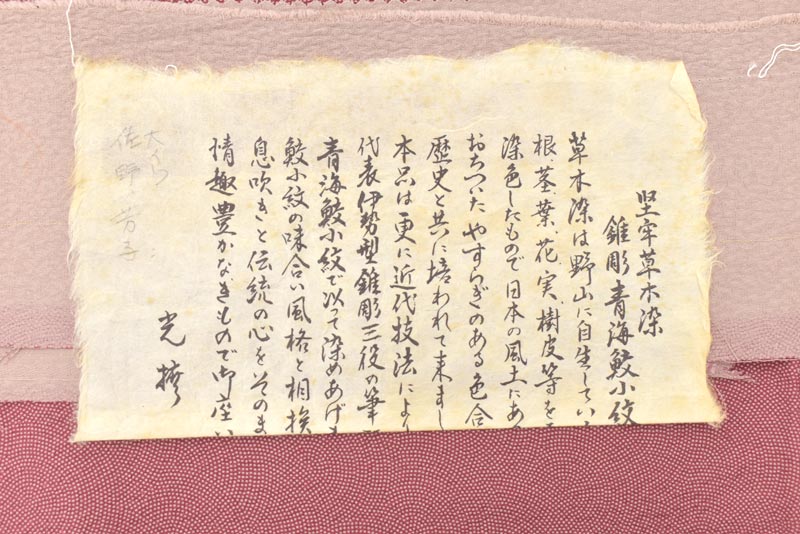 堅牢草木染
錐彫青海鮫小紋
草木染は野山に自生してい
根、茎、葉、花、実、樹皮等を
染色したもので日本の風土にあ
おちついたやすらぎのある色合
歴史と共に培われて来まし
本品は更に近代技法により
代表伊勢型錐彫三役の筆
青海鮫小紋で以って染めあげ
鮫小紋の味合い風格と相俟
息吹きと伝統の心をそのま
情趣豊かなきもので御座い
光
佐野芳子